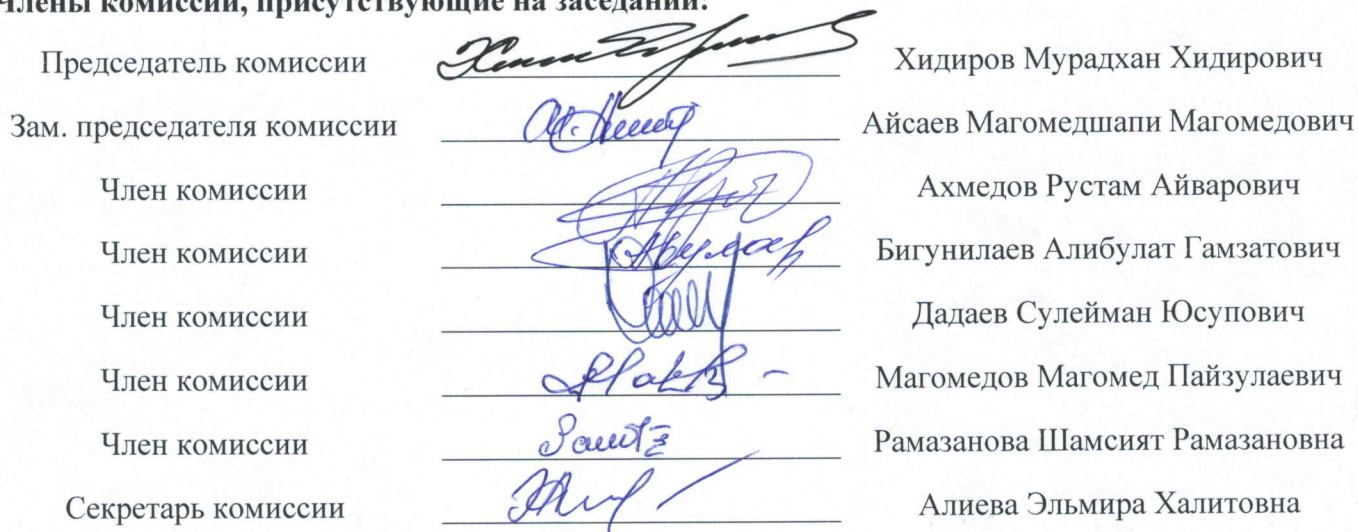 Члены комиссии, присутствующие на заседании:
Председатель комиссии Хидиров Мурадхан Хидирович
Зам. председателя комиссии Айсаев Магомедшапи Магомедович
Член комиссии Ахмедов Рустам Айварович
Член комиссии Бигунилаев Алибулат Гамзатович
Член комиссии Дадаев Сулейман Юсупович
Член комиссии Магомедов Магомед Пайзулаевич
Член комиссии Рамазанова Шамсият Рамазановна
Секретарь комиссии Алиева Эльмира Халитовна